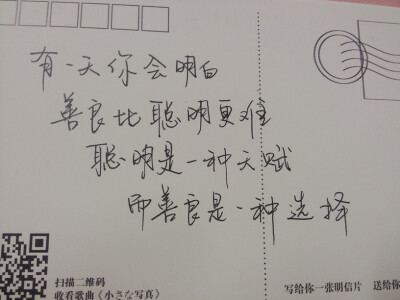 有一天你会明白
善良比聪明更难
聪明是一种天赋
而善良是一种选择
扫描二维码
收看歌曲《小さな写真》
写给你一张明信片 送给你